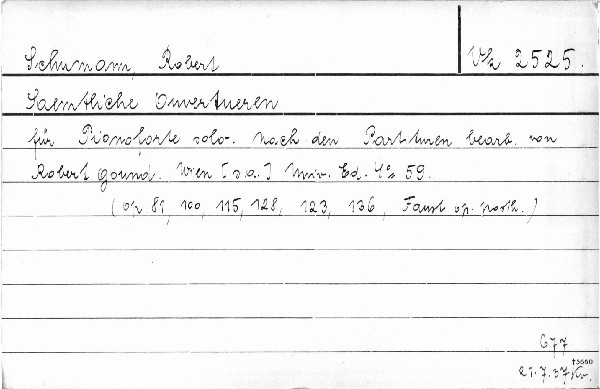 Schumann, Robert
Vh 2525.
Saemtliche Ouvertueren
für Pianoforte solo. Nach den Partituren bearb. von
Robert Gound. Wien [s.a.] Univ. Ed. 4° 59.
(op 81, 100, 115, 128, 123, 136, Faust op. posth.)
677
†3660
21.7.37 Kr.